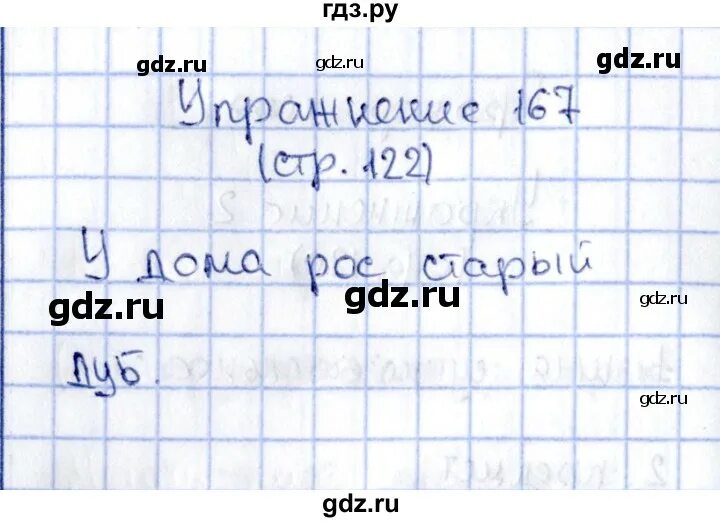 гдз.ру
gdz.ru gdz.ru gdz.ru
Упражнение 167
(стр. 122)
У дома рос старый
gdz.ru gdz.ru gdz.ru
дуб.
gdz.ru
gdz.ru